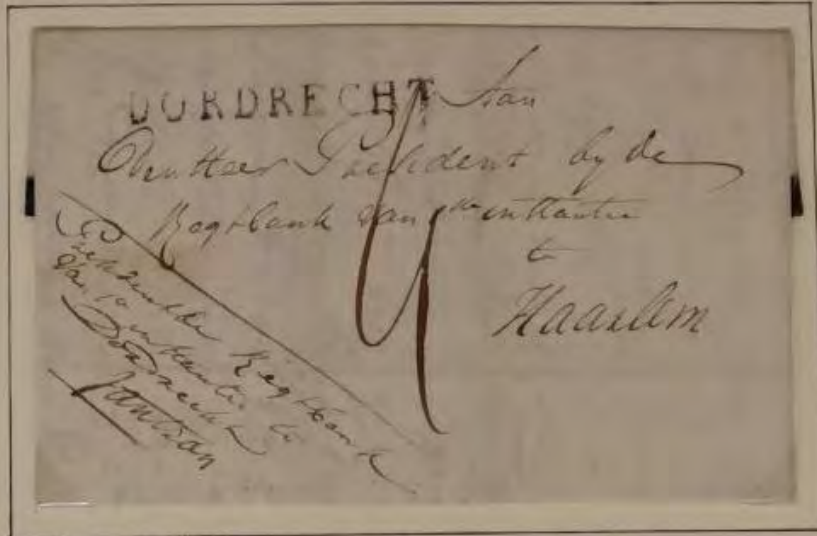 DORDRECHT
Aan
den Heer President by de
Regtbank van 1ste instantie
te
Haarlem
President der Regtbank
van 1e instantie te
Dordrecht